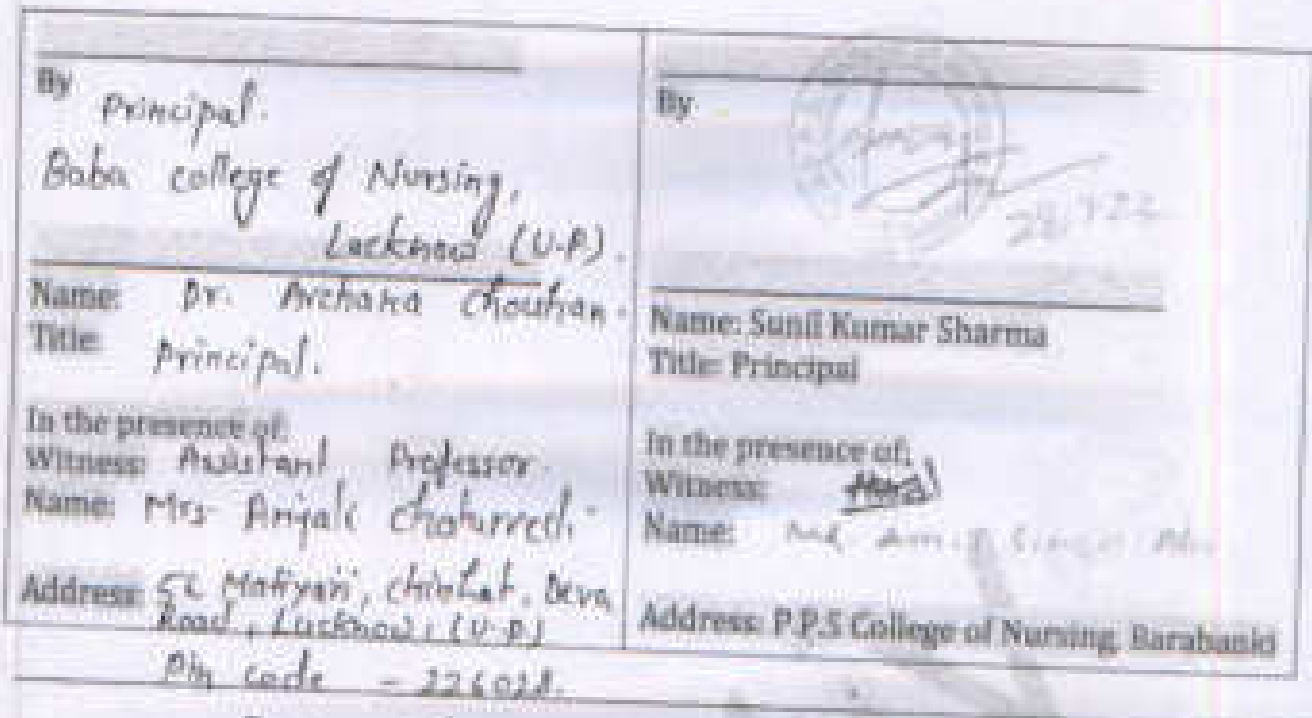 By
Principal.
Baba college of Nursing,
Lucknow (U.P).
Name: Dr. Archana Chouhan.
Title: Principal.
In the presence of:
Witness: Assistant Professor.
Name: Mrs. Anjali Chaturvedi
Address: Matiyari, Chinhat, Deva
Road, Lucknow, (U.P)
Pin code - 226028.
By
Name: Sunil Kumar Sharma
Title: Principal
In the presence of:
Witness:
Name: Mr. Singh
Address: P.P.S College of Nursing, Barabanki